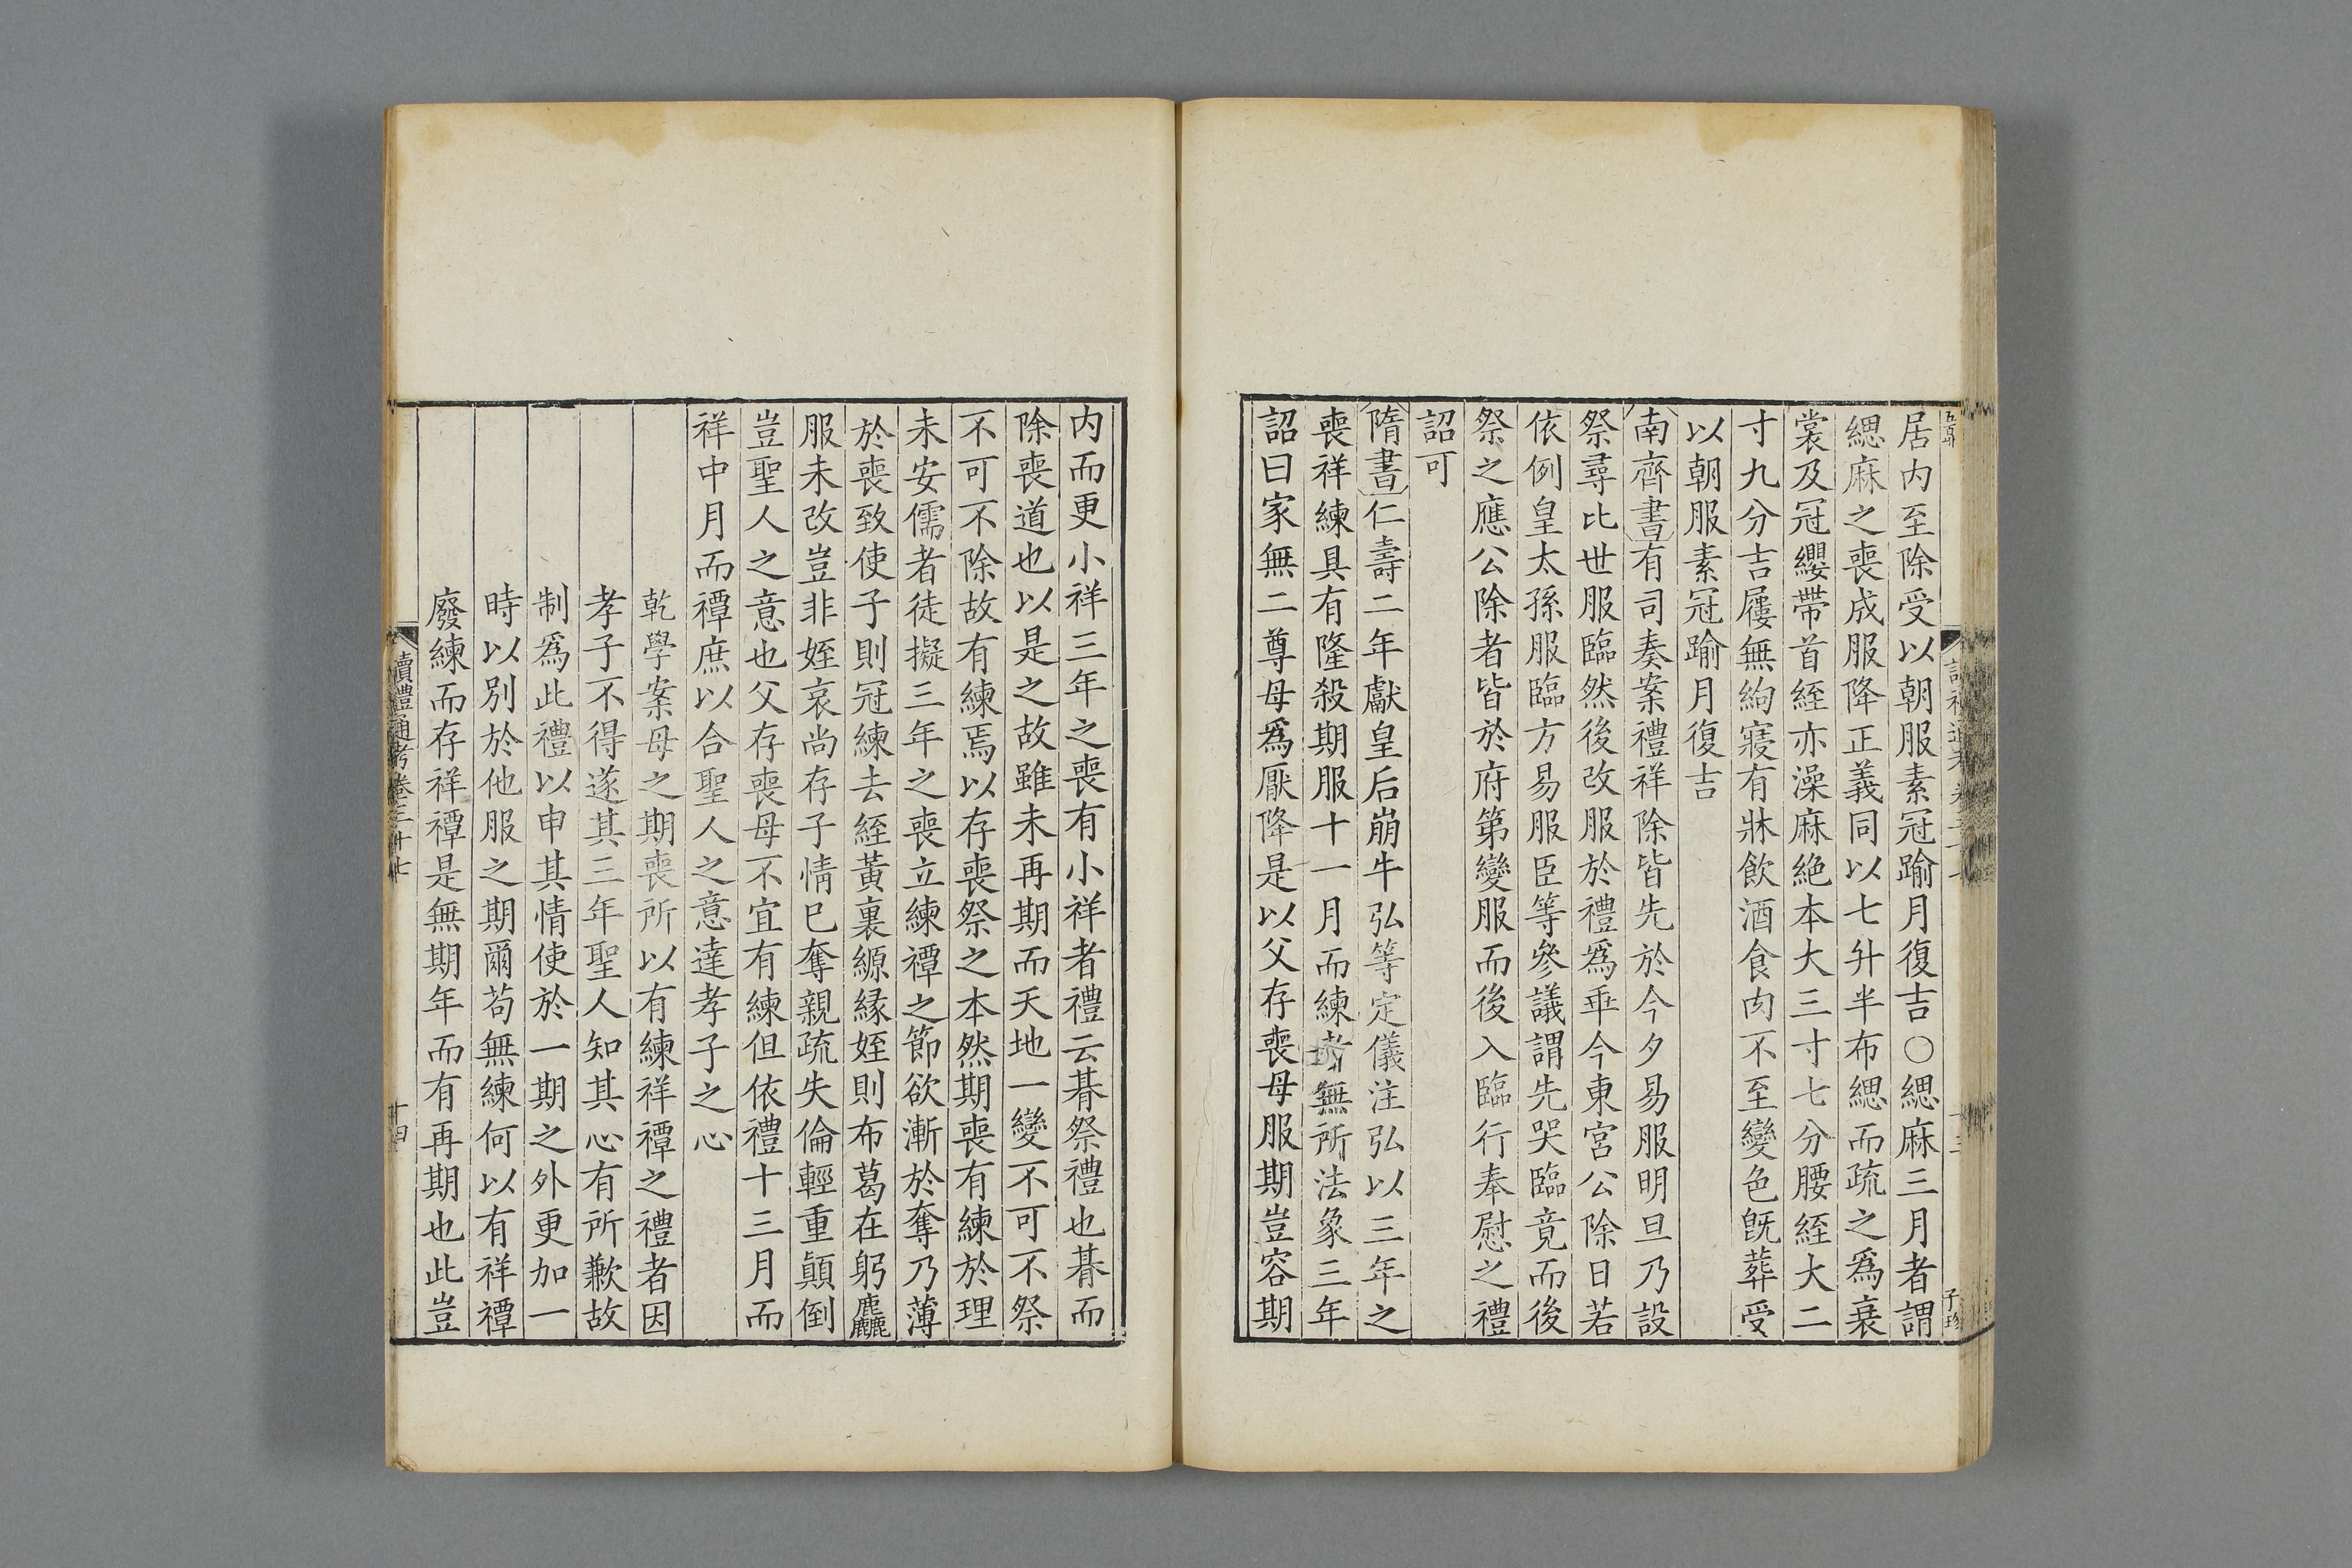 居内至除受以朝服素冠踰月復吉○緦麻三月者謂
緦麻之喪成服降正義同以七升半布緦而疏之爲衰
裳及冠纓帶首絰亦澡麻絶本大三寸七分腰絰大二
寸九分吉屨無絇寢有牀飲酒食肉不至變色旣葬受
以朝服素冠踰月復吉
南齊書有司奏案禮祥除皆先於今夕易服明旦乃設
祭尋比世服臨然後改服於禮爲乖今東宮公除日若
依例皇太孫服臨方易服臣等參議謂先哭臨竟而後
祭之應公除者皆於府第變服而後入臨行奉慰之禮
詔可
隋書仁壽二年獻皇后崩牛弘等定儀注弘以三年之
喪祥練具有隆殺期服十一月而練者無所法象三年
詔曰家無二尊母爲厭降是以父存喪母服期豈容期
内而更小祥三年之喪有小祥者禮云朞祭禮也朞而
除喪道也以是之故雖未再期而天地一變不可不祭
不可不除故有練焉以存喪祭之本然期喪有練於理
未安儒者徒擬三年之喪立練禫之節欲漸於奪乃薄
於喪致使子則冠練去絰黃裏縓緣姪則布葛在躬麤
服未改豈非姪哀尚存子情已奪親疏失倫輕重顛倒
豈聖人之意也父存喪母不宜有練但依禮十三月而
祥中月而禫庶以合聖人之意達孝子之心
乾學案母之期喪所以有練祥禫之禮者因
孝子不得遂其三年聖人知其心有所歉故
制爲此禮以申其情使於一期之外更加一
時以別於他服之期爾苟無練何以有祥禫
廢練而存祥禫是無期年而有再期也此豈
讀禮通考卷三十七
十四